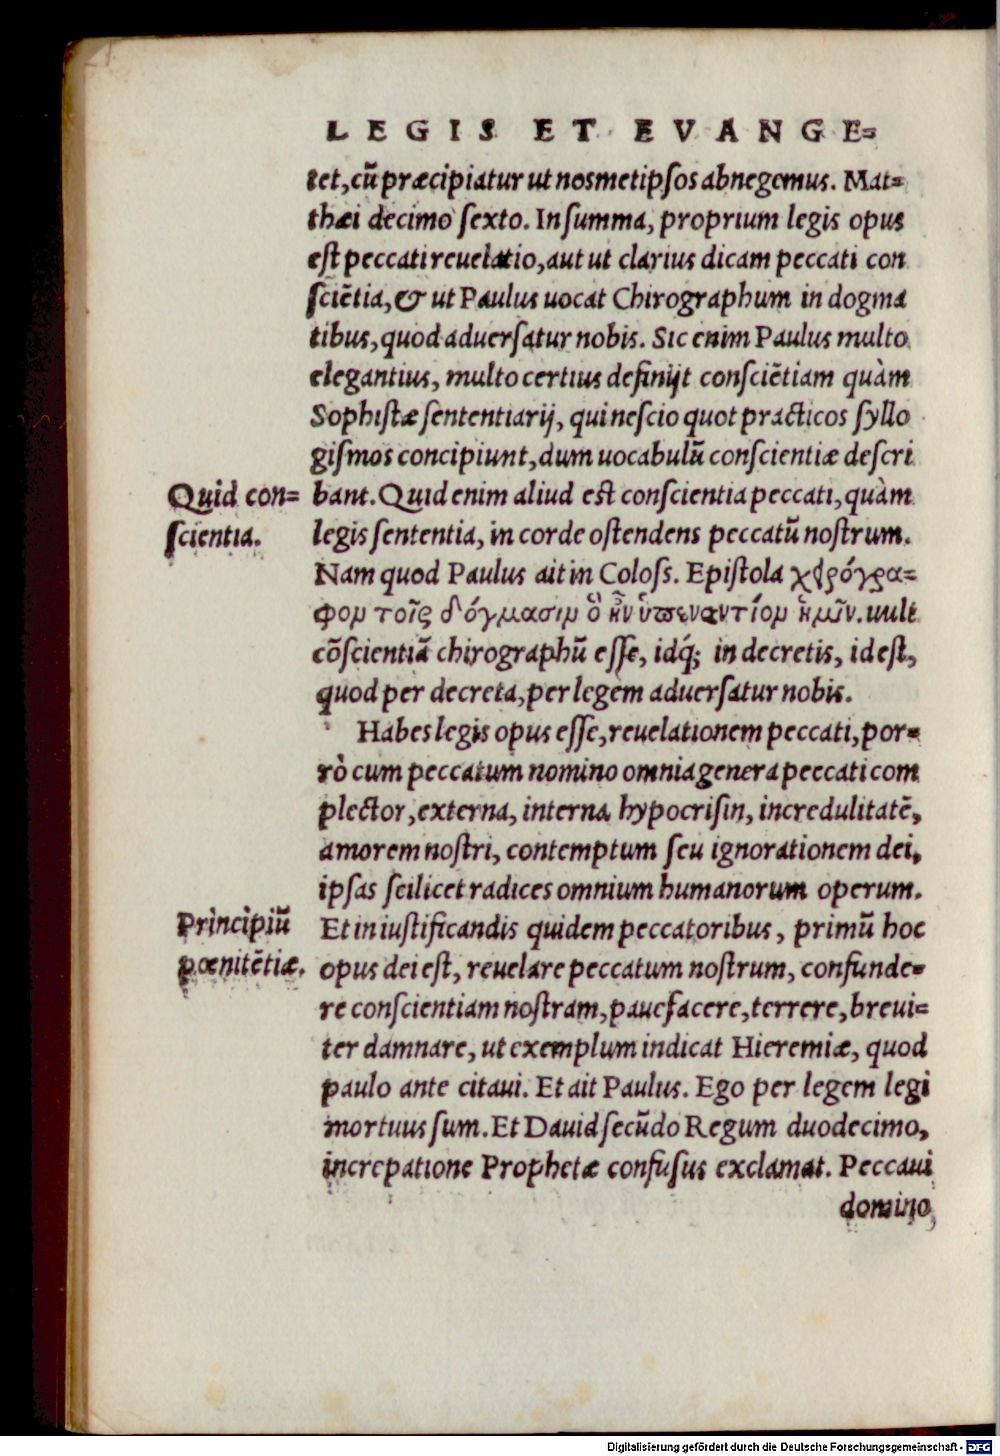 LEGIS ET EVANGE=
tet, cũ præcipiatur ut nosmetipſos abnegemus. Mat=
thæi decimo ſexto. In ſumma, proprium legis opus
eſt peccati reuelatio, aut ut clarius dicam peccati con
ſciẽtia, & ut Paulus uocat Chirographum in dogma
tibus, quod aduerſatur nobis. Sic enim Paulus multo
elegantius, multo certius definijt conſciẽtiam quàm
Sophiſtæ ſententiarij, qui neſcio quot practicos ſyllo
giſmos concipiunt, dum uocabulũ conſcientiæ deſcri
Quid con=
ſcientia.
bant. Quid enim aliud eſt conſcientia peccati, quàm
legis ſententia, in corde oſtendens peccatũ noſtrum.
Nam quod Paulus ait in Coloſſ. Epiſtola χειρόγρα=
φον τοῖς δόγμασιν ὃ ἦν ὑπεναντίον ἡμῖν. uult
cõſcientiã chirographũ eſſe, idq́; in decretis, id eſt,
quod per decreta, per legem aduerſatur nobis.
Habes legis opus eſſe, reuelationem peccati, por=
rò cum peccatum nomino omnia genera peccati com
plector, externa, interna hypocriſin, incredulitatẽ,
amorem noſtri, contemptum ſeu ignorationem dei,
ipſas ſcilicet radices omnium humanorum operum.
Principiũ
pœnitẽtiæ.
Et in iuſtificandis quidem peccatoribus, primũ hoc
opus dei eſt, reuelare peccatum noſtrum, confunde=
re conſcientiam noſtram, pauefacere, terrere, breui=
ter damnare, ut exemplum indicat Hieremiæ, quod
paulo ante citaui. Et ait Paulus. Ego per legem legi
mortuus ſum. Et Dauid ſecũdo Regum duodecimo,
increpatione Prophetæ confuſus exclamat. Peccaui
domino,
Digitalisierung gefördert durch die Deutsche Forschungsgemeinschaft - DFG